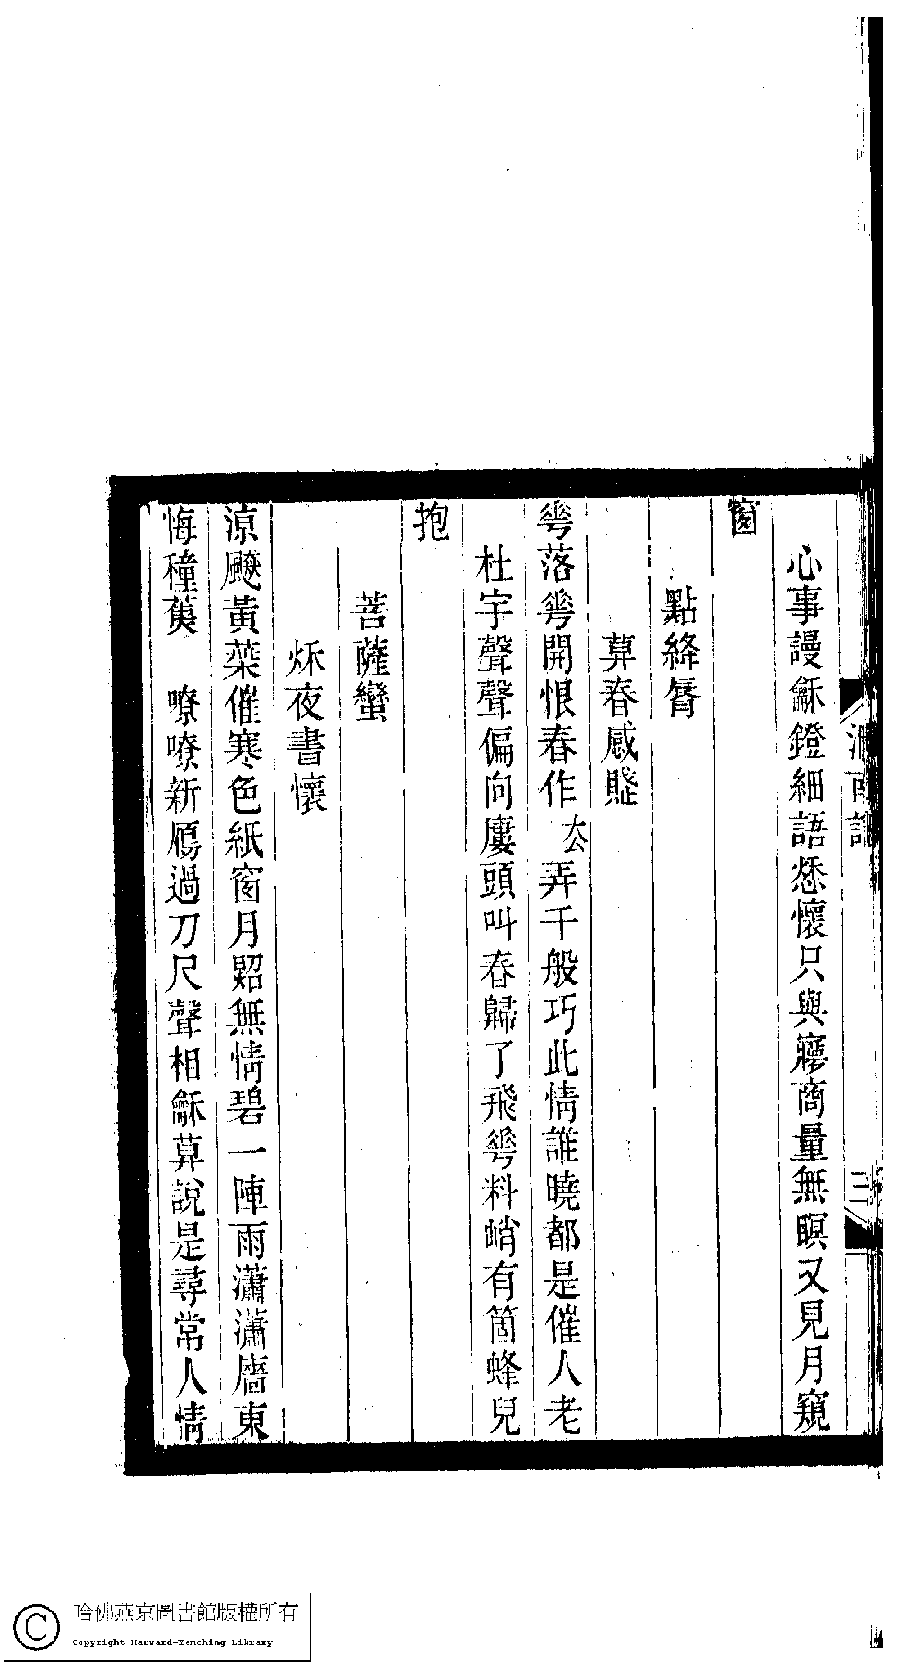 心事謾龢鐙細語愁懷只與寢商量無瞑又見月窺
窗
點絳脣
算春感賦
甹落甹開恨春作厺弄千般巧此情誰曉都是催人老
杜宇聲聲偏向廔頭叫春歸了飛甹料峭有箇蜂兒
抱
菩薩蠻
秌夜書懷
涼颸黃葉催寒色紙窗月照無情碧一陣雨瀟瀟牆東
悔穜蕉　嘹嘹新鴈過刀尺聲相龢算說是尋常人情
三
哈佛燕京圖書館版權所有
Copyright Harvard-Yenching Library